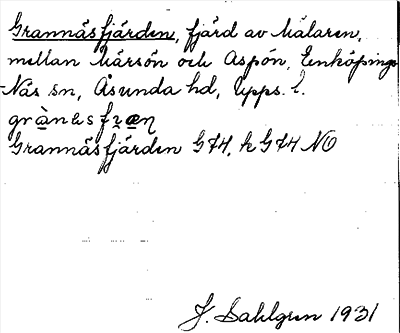 Grannäsfjärden, fjärd av Mälaren,
mellan Märsön och Aspön, Enköpings-
Näs sn, Åsunda hd, Upps. l.
Grannäsfjärden G74, k G74 NO
J. Sahlgren 1931